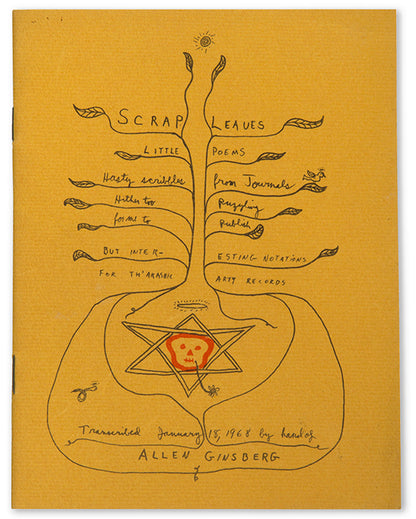 SCRAP LEAVES
LITTLE POEMS
Hasty scribbles from Journals
Hither too Puzzling
for me to Publish
BUT INTER- ESTING NOTATIONS
FOR TH'AKASHIC ARTY RECORDS
Transcribed January 18, 1968 by hand of
ALLEN GINSBERG